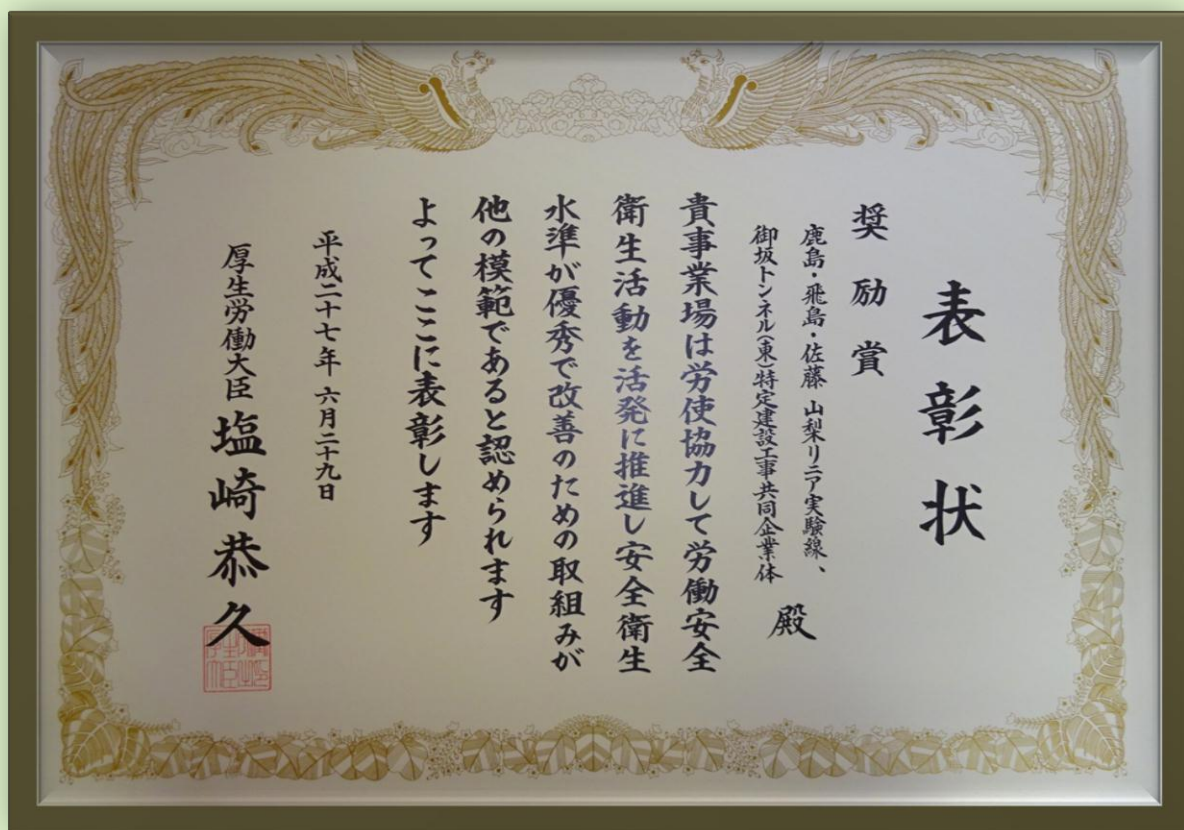 表彰状
奨励賞
鹿島・飛島・佐藤 山梨リニア実験線、
御坂トンネル(東)特定建設工事共同企業体
殿
貴事業場は労使協力して労働安全
衛生活動を活発に推進し安全衛生
水準が優秀で改善のための取組みが
他の模範であると認められます
よってここに表彰します
平成二十七年 六月二十九日
厚生労働大臣 塩崎恭久